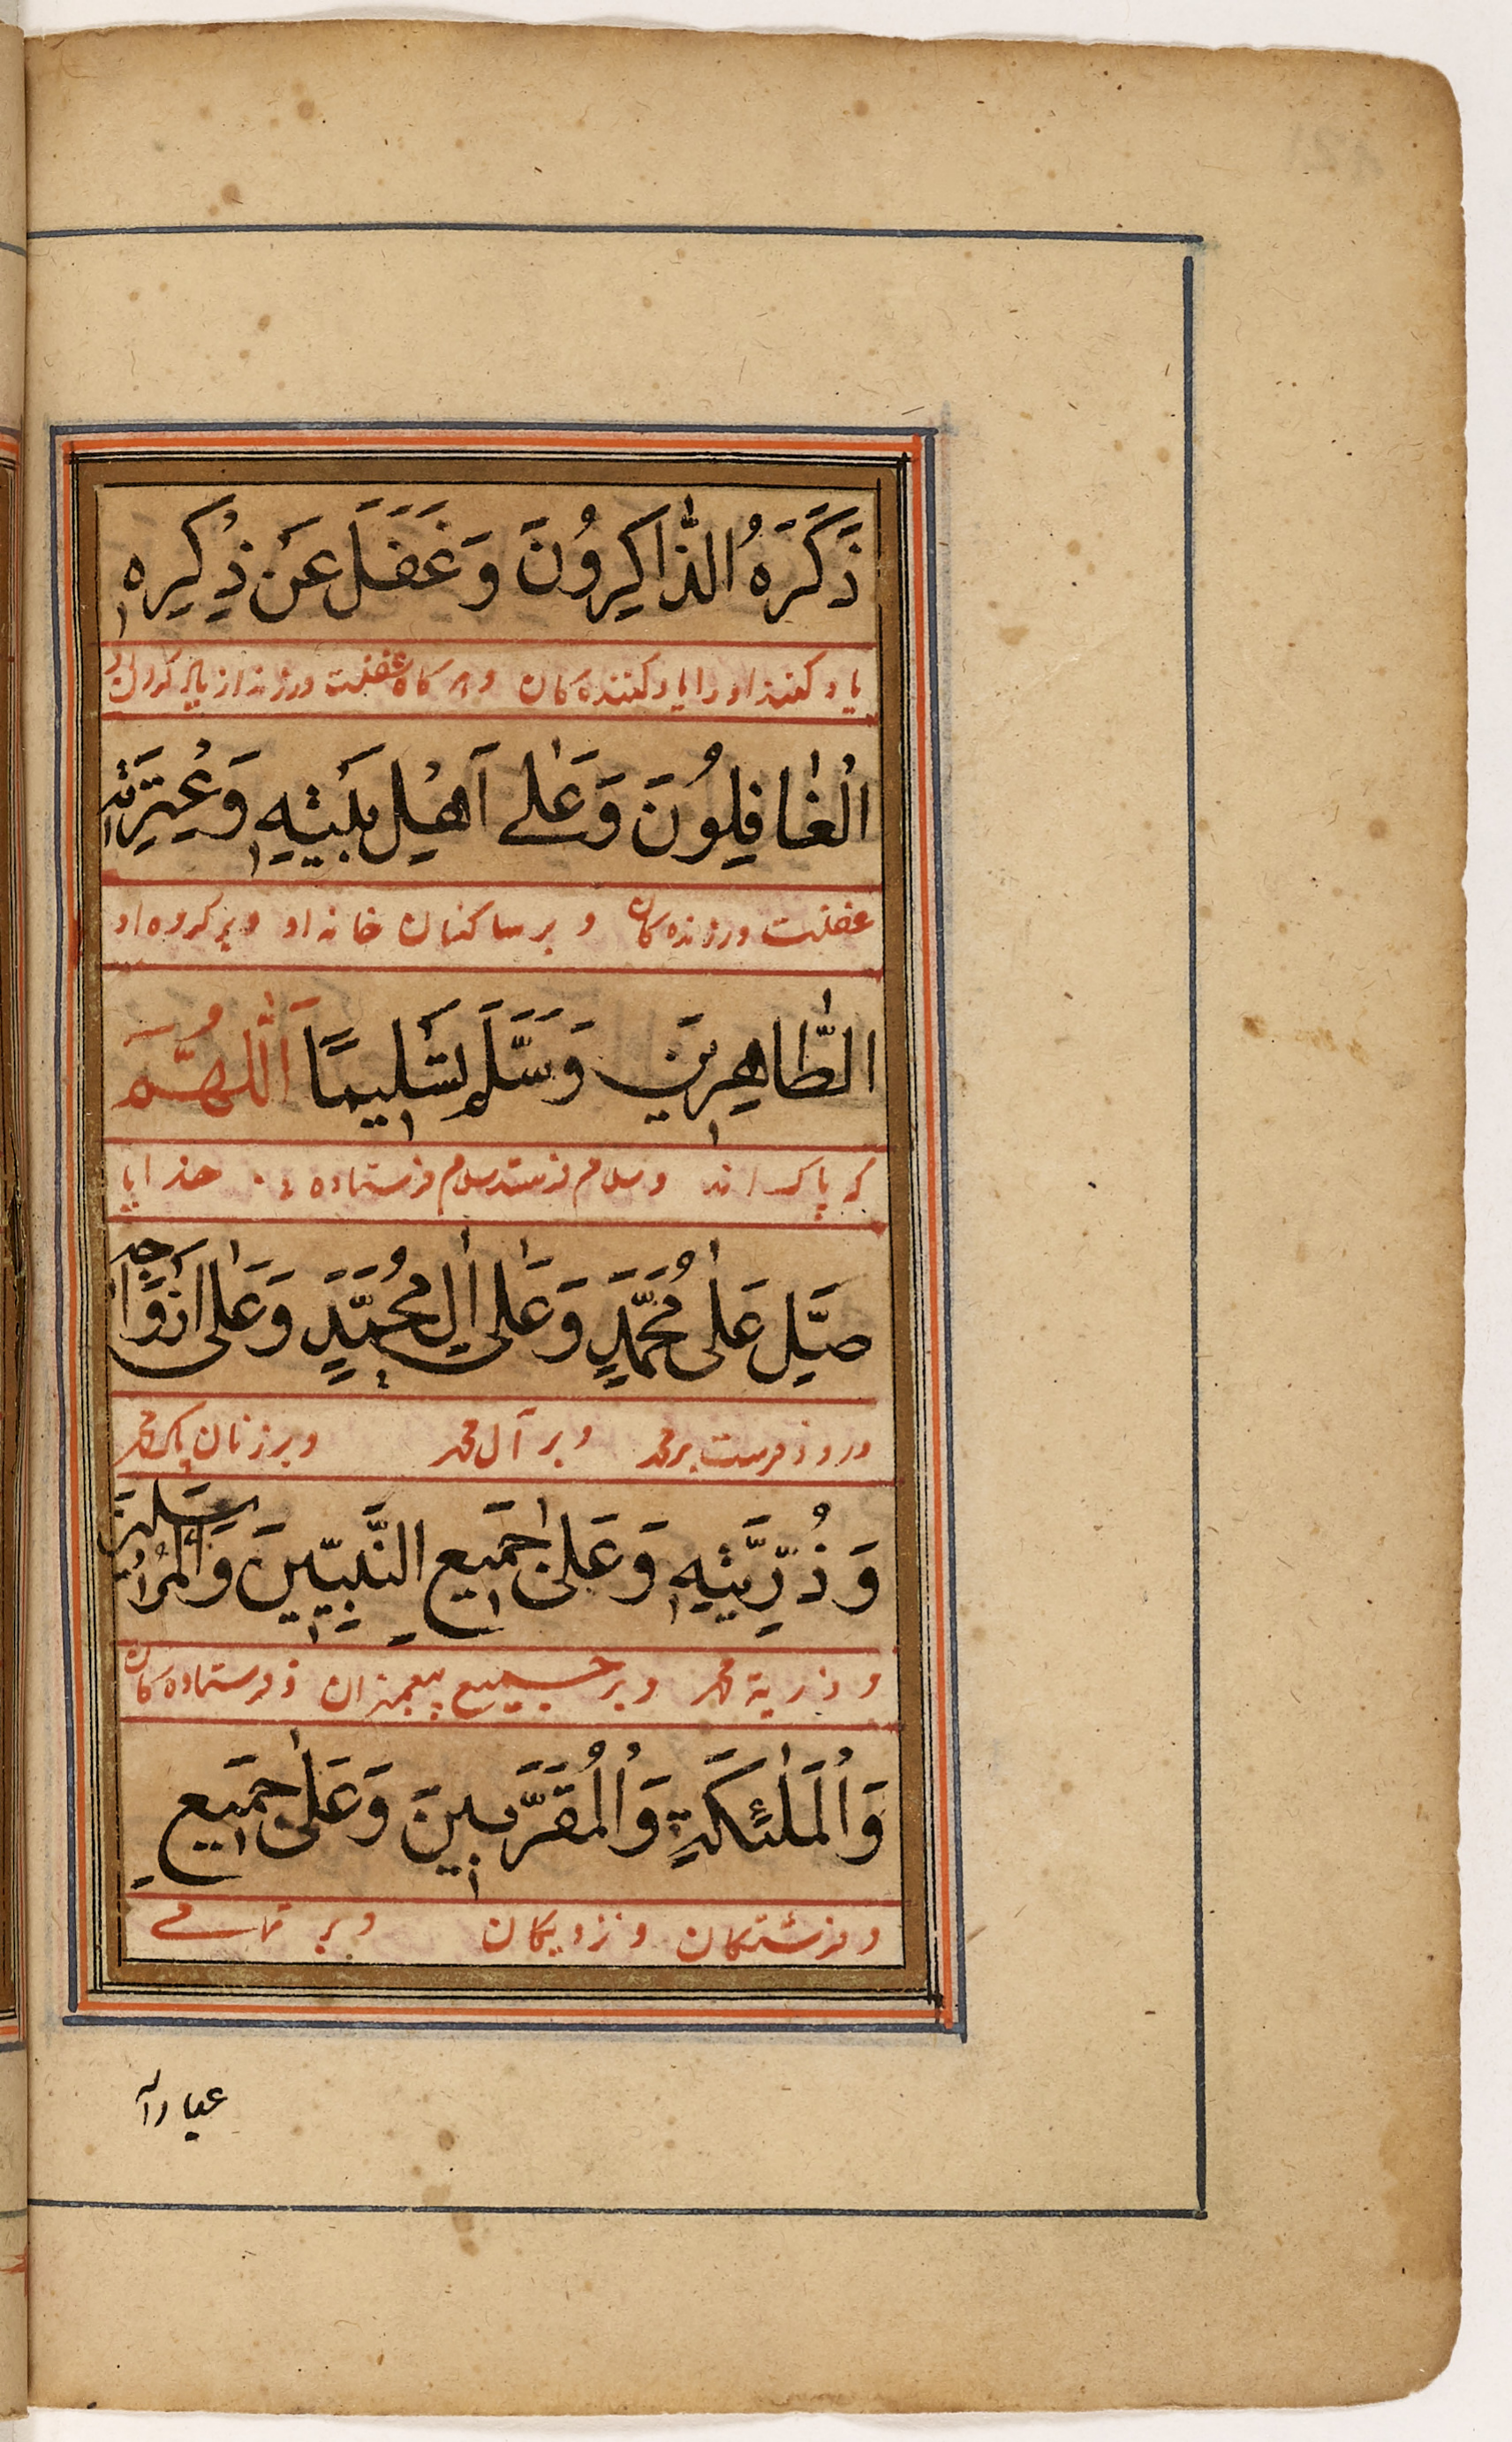 ذَكَرَهُ الذّٰاكِرُونَ وَغَفَلَ عَن ذِكْرِهِ
یاد کنند او را یاد کننده کان وهر کاه غفلت ورزند از یاد کردن او
الْغٰافِلُونَ وَعَلٰى اَهْلِ بَيْتِهِ وَعِتْرَتِهِ
غفلت ورزنده کان و بر ساکنان خانه او و بر کروه او
الطّٰاهِرِينَ وَسَلَّمَ تَسْلِيمًا اَللّٰهُمَّ
که پاک اند و سلام فرستد سلام فرستادنی خدایا
صَلِّ عَلٰى مُحَمَّدٍ وَعَلٰى اٰلِ مُحَمَّدٍ وَعَلٰى اَزْوَاجِهِ
درود فرست بر محمد و بر آل محمد و بر زنان پاک محمد
وَذُرِّيَّتِهِ وَعَلٰى جَمِيعِ النَّبِيِّينَ وَالْمُرْسَلِينَ
و ذریة محمد و بر جمیع پیغمبران و فرستاده کان
وَالْمَلٰئِكَةِ وَالْمُقَرَّبِينَ وَعَلٰى جَمِيعِ
و فرشتکان و نزدیکان و بر تمامی
عباد الله